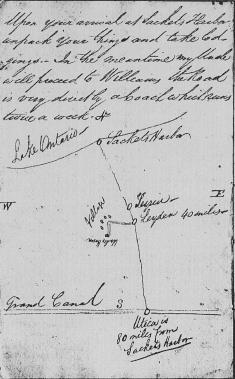 Upon your arrival at Sackets Harbor
unpack your things and take Lod-
gings - In the meantime my Uncle
will proceed to Williams the Road
is very directly a boach which runs
twice a week - &
Lake Ontario
Sackets Harbor
W
E
Village
Turin
Leyden 40 miles
Grand Canal
3
Utica is
80 miles from
Sackets Harbor